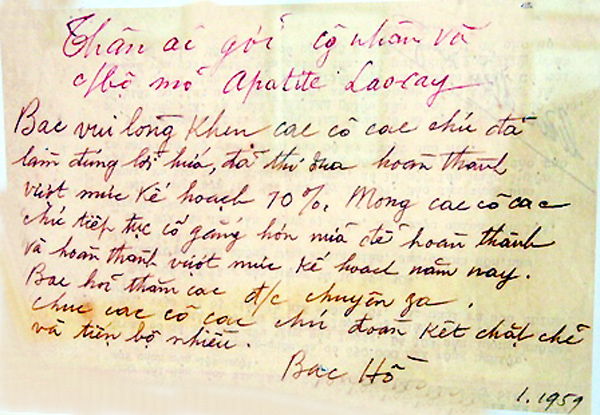 Thân ái gửi công nhân và
c/bộ mỏ Apatite Laocay
Bac vui lòng khen cac cô cac chú đã
làm đúng lời hứa, đã thi đua hoàn thành
vượt mức kế hoạch 10%. Mong cac cô cac
chú tiếp tục cố gắng hơn nữa để hoàn thành
và hoàn thành vượt mức kế hoach năm nay.
Bac hỏi thăm cac đ/c chuyên za.
chuc cac cô cac chú đoàn kết chặt chẽ
và tiến bộ nhiều.
Bac Hồ
1.1959